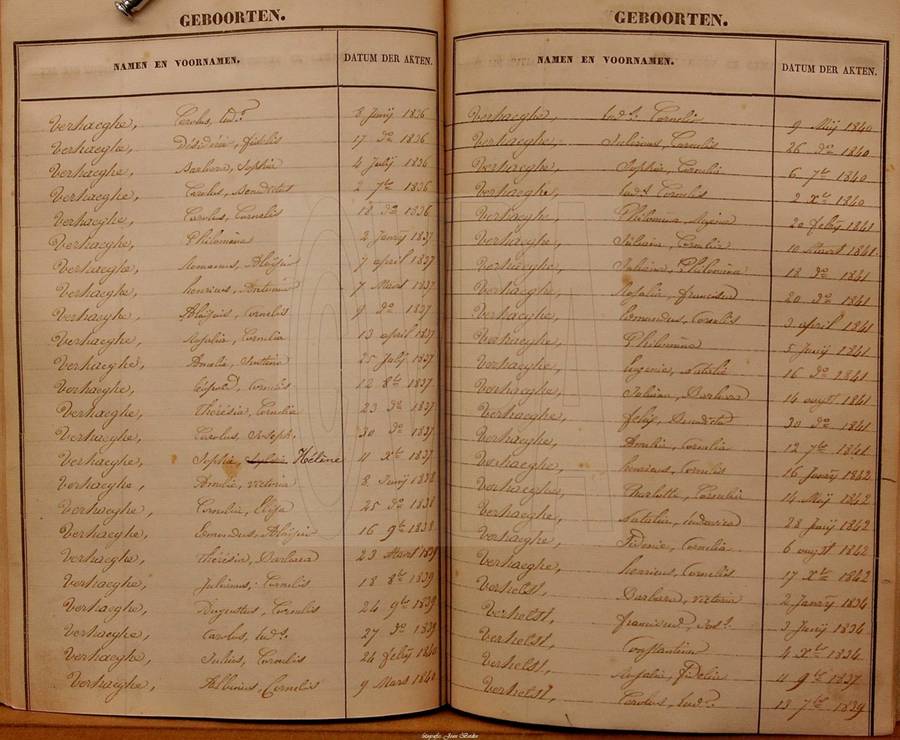 GEBOORTEN.
NAMEN EN VOORNAMEN. DATUM DER AKTEN.
Verhaeghe, Carolus, Lud. 8 Junij 1836
Verhaeghe, Désidérie, Fidélis 17 do 1836
Verhaeghe, Barbara, Sophia 4 Julij 1836
Verhaeghe, Carolus, Benedictus 2 7bre 1836
Verhaeghe, Carolus, Cornelis 18 do 1836
Verhaeghe, Philomène 2 Janrij 1837
Verhaeghe, Romanus, Aloijsius 7 april 1837
Verhaeghe, henricus, Antonius 7 Mars 1837
Verhaeghe, Aloijsius, Cornelis 9 do 1837
Verhaeghe, Rosalia, Cornelia 13 april 1837
Verhaeghe, Amalia, 25 Julij 1837
Verhaeghe, Léopold, Cornélis 12 8bre 1837
Verhaeghe, Thérésia, Cornelia 23 do 1837
Verhaeghe, Carolus, Joseph. 30 do 1837
Verhaeghe, Sophia, Hélène 11 Xbre 1837
Verhaeghe, Amélie, victoria 8 Junij 1838
Verhaeghe, Cornélia, Elisa 25 do 1838
Verhaeghe, Edmondus, Aloijsius 16 9bre 1838
Verhaeghe, Thérésia, Barbara 23 Mars 1839
Verhaeghe, Julianus, Cornelis 18 8bre 1839
Verhaeghe, Augustus, Cornelis 24 9bre 1839
Verhaeghe, Carolus, Lud. 27 do 1839
Verhaeghe, Julius, Cornelis 24 febrij 1840
Verhaeghe, Albinus, Cornelis 9 Mars 1840
GEBOORTEN.
NAMEN EN VOORNAMEN. DATUM DER AKTEN.
Verhaeghe, Lud. Cornelis 9 Meij 1840
Verhaeghe, Julianus, Cornelis 26 do 1840
Verhaeghe, Sophia, Cornelia 6 7bre 1840
Verhaeghe, Lud. Cornelis 2 Xbre 1840
Verhaeghe, Philomena, 20 febrij 1841
Verhaeghe, Juliana, Cornelia 10 Maart 1841
Verhaeghe, Juliana, Philomena 18 do 1841
Verhaeghe, Rosalia, francisca 20 do 1841
Verhaeghe, Edmondus, Cornelis 3 april 1841
Verhaeghe, Philomène 5 Junij 1841
Verhaeghe, Eugenia, Natalie 16 do 1841
Verhaeghe, Juliana, Barbara 14 augst 1841
Verhaeghe, félix, Benedictus 30 do 1841
Verhaeghe, Amélie, Cornelia 12 7bre 1841
Verhaeghe, henricus, Cornelis 16 Janrij 1842
Verhaeghe, Charlotte, Cornelia 14 Meij 1842
Verhaeghe, Natalia, Ludovica 28 Junij 1842
Verhaeghe, Sidonie, Cornelia 6 augst 1842
Verhaeghe, henricus, Cornelis 17 Xbre 1842
Verhelst, Barbara, victoria 2 Janrij 1834
Verhelst, franciscus, Jos. 3 Junij 1834
Verhelst, Constantin 4 Xbre 1834
Verhelst, Rosalia, fidelia 11 9bre 1837
Verhelst, Carolus, Lud. 13 7bre 1839